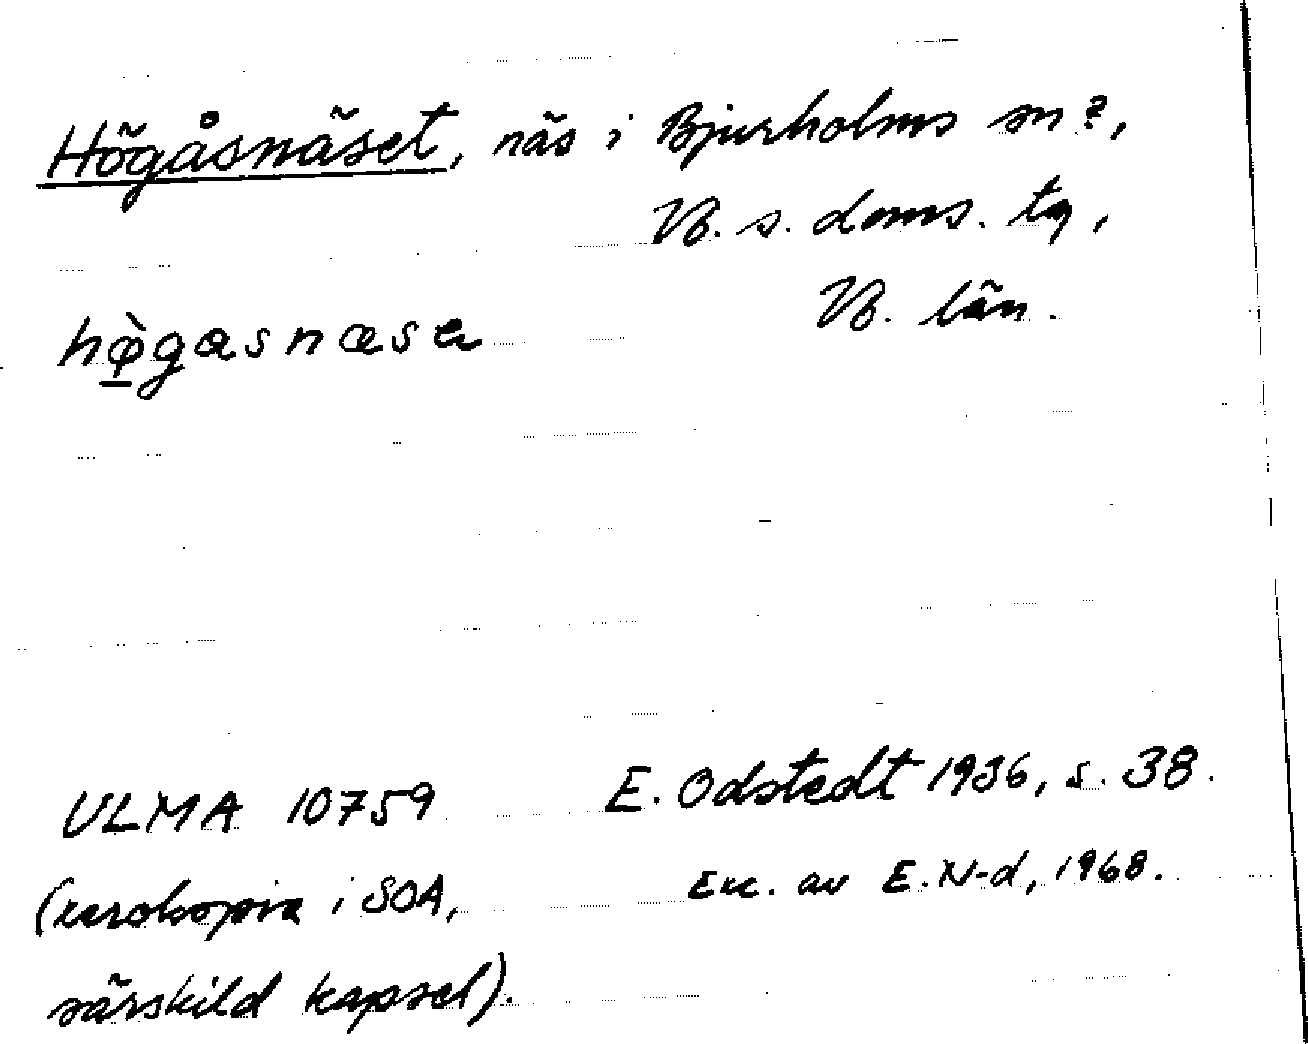 Högåsnäset, näs i Bjurholms sn?,
VB. s. doms. tg,
VB. län.
hø̀gasnæsa
ULMA 10759 E. Odstedt 1936, s. 38.
(xerokopia i SOA, Exc. av E. N-d, 1968.
särskild kapsel).